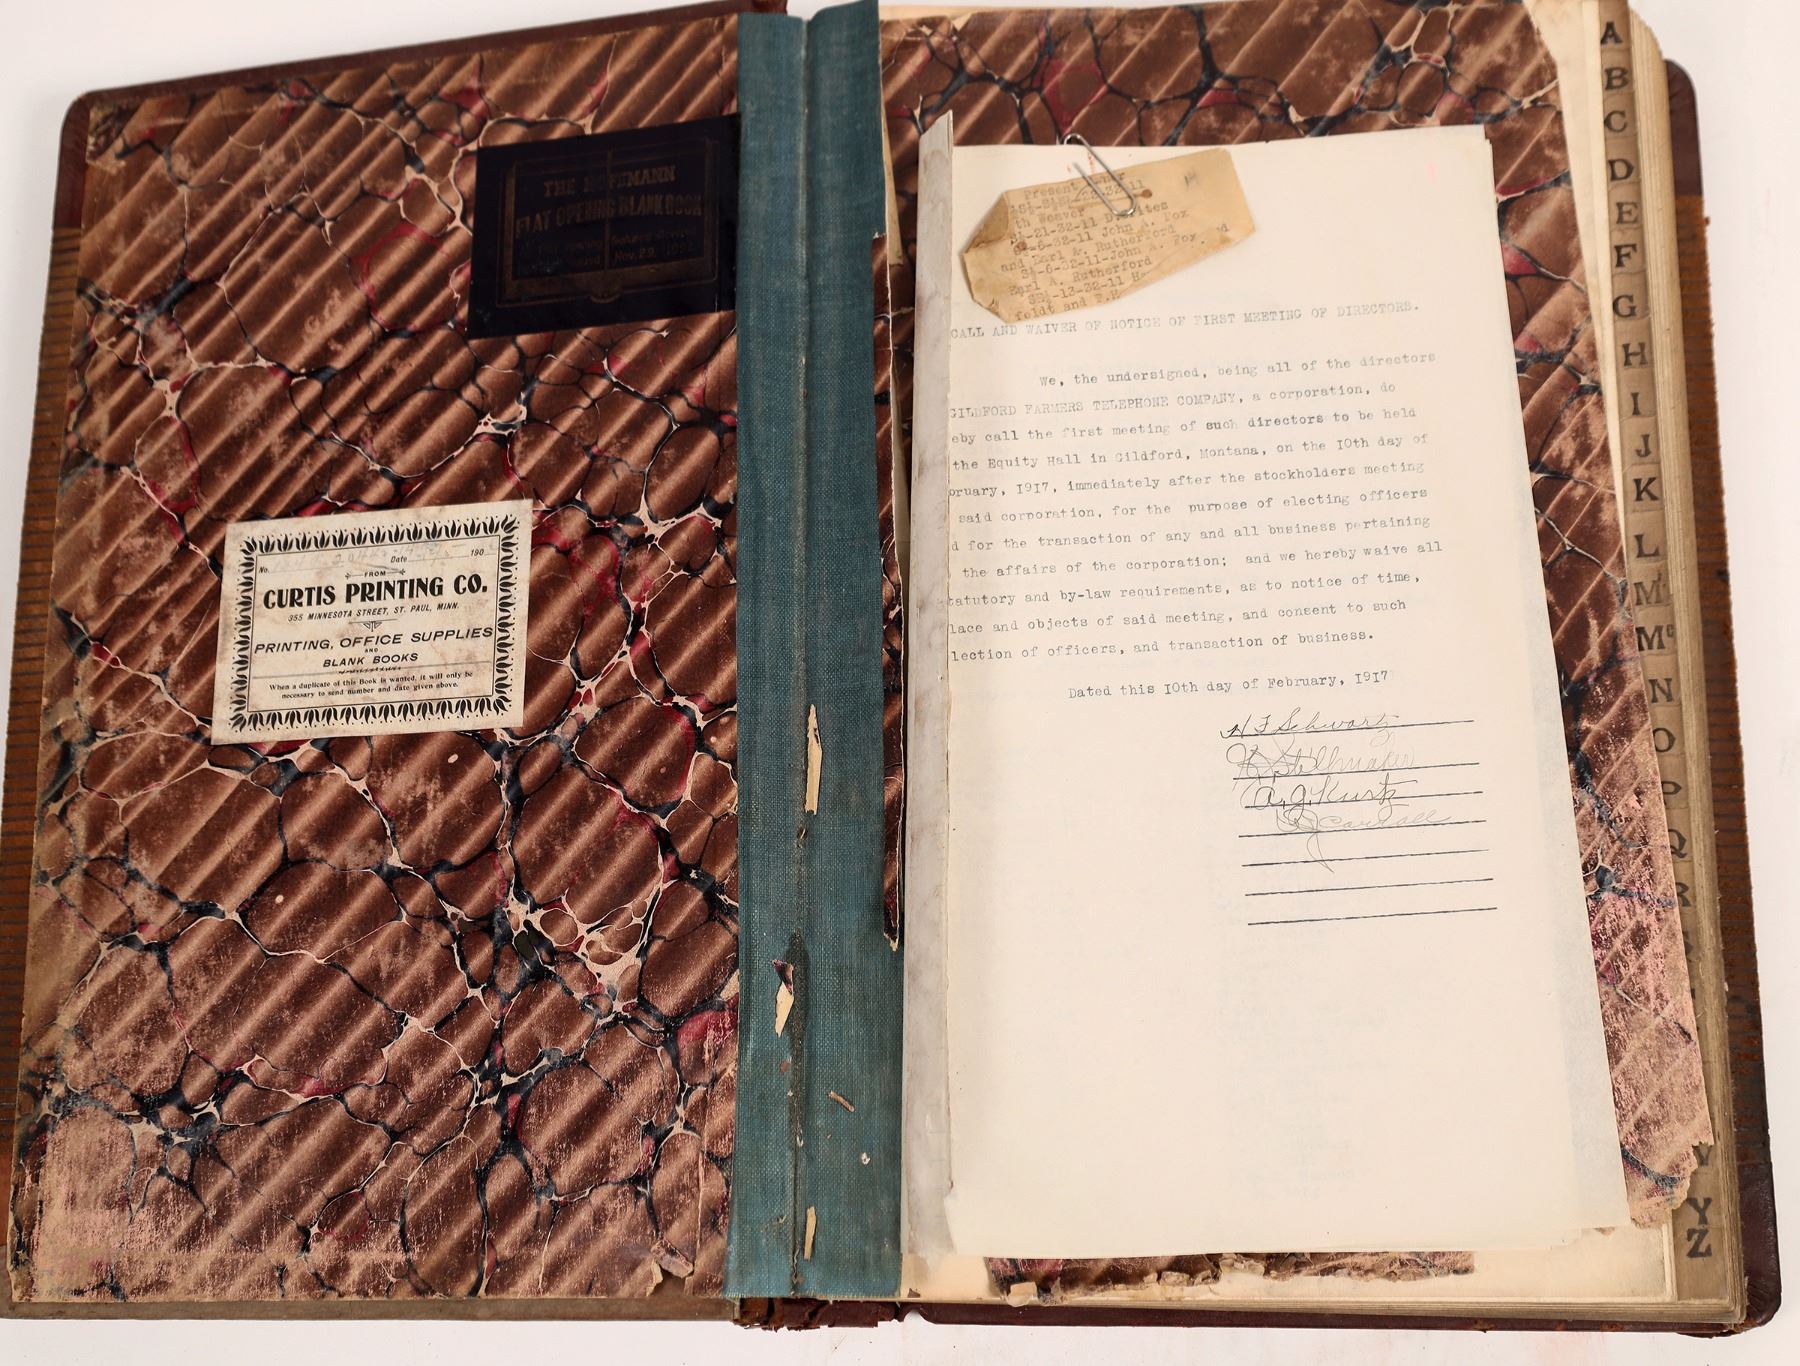 THE HOFFMANN
FLAT OPENING BLANK BOOK
Nov. 29, 1892
No. Date 190
FROM
CURTIS PRINTING CO.
355 MINNESOTA STREET, ST. PAUL, MINN.
PRINTING, OFFICE SUPPLIES
AND
BLANK BOOKS
When a duplicate of this Book is wanted, it will only be
necessary to send number and date given above.
Present
th Weaver
-21-32-11
-6-32-11 John A. Fox
and Earl A. Rutherford
S½-6-32-11-John A. Fox
Earl A. Rutherford
SE¼-13-32-11
foldt and F.H
CALL AND WAIVER OF NOTICE OF FIRST MEETING OF DIRECTORS.
We, the undersigned, being all of the directors
GILDFORD FARMERS TELEPHONE COMPANY, a corporation, do
eby call the first meeting of such directors to be held
the Equity Hall in Gildford, Montana, on the 10th day of
bruary, 1917, immediately after the stockholders meeting
said corporation, for the purpose of electing officers
d for the transaction of any and all business pertaining
the affairs of the corporation; and we hereby waive all
tatutory and by-law requirements, as to notice of time,
lace and objects of said meeting, and consent to such
lection of officers, and transaction of business.
Dated this 10th day of February, 1917
H F Schwartz
Stellmaker
A. J. Kurtz
Carroll
A
B
C
D
E
F
G
H
I
J
K
L
M
Mc
N
O
P
Q
R
V
Y
Z